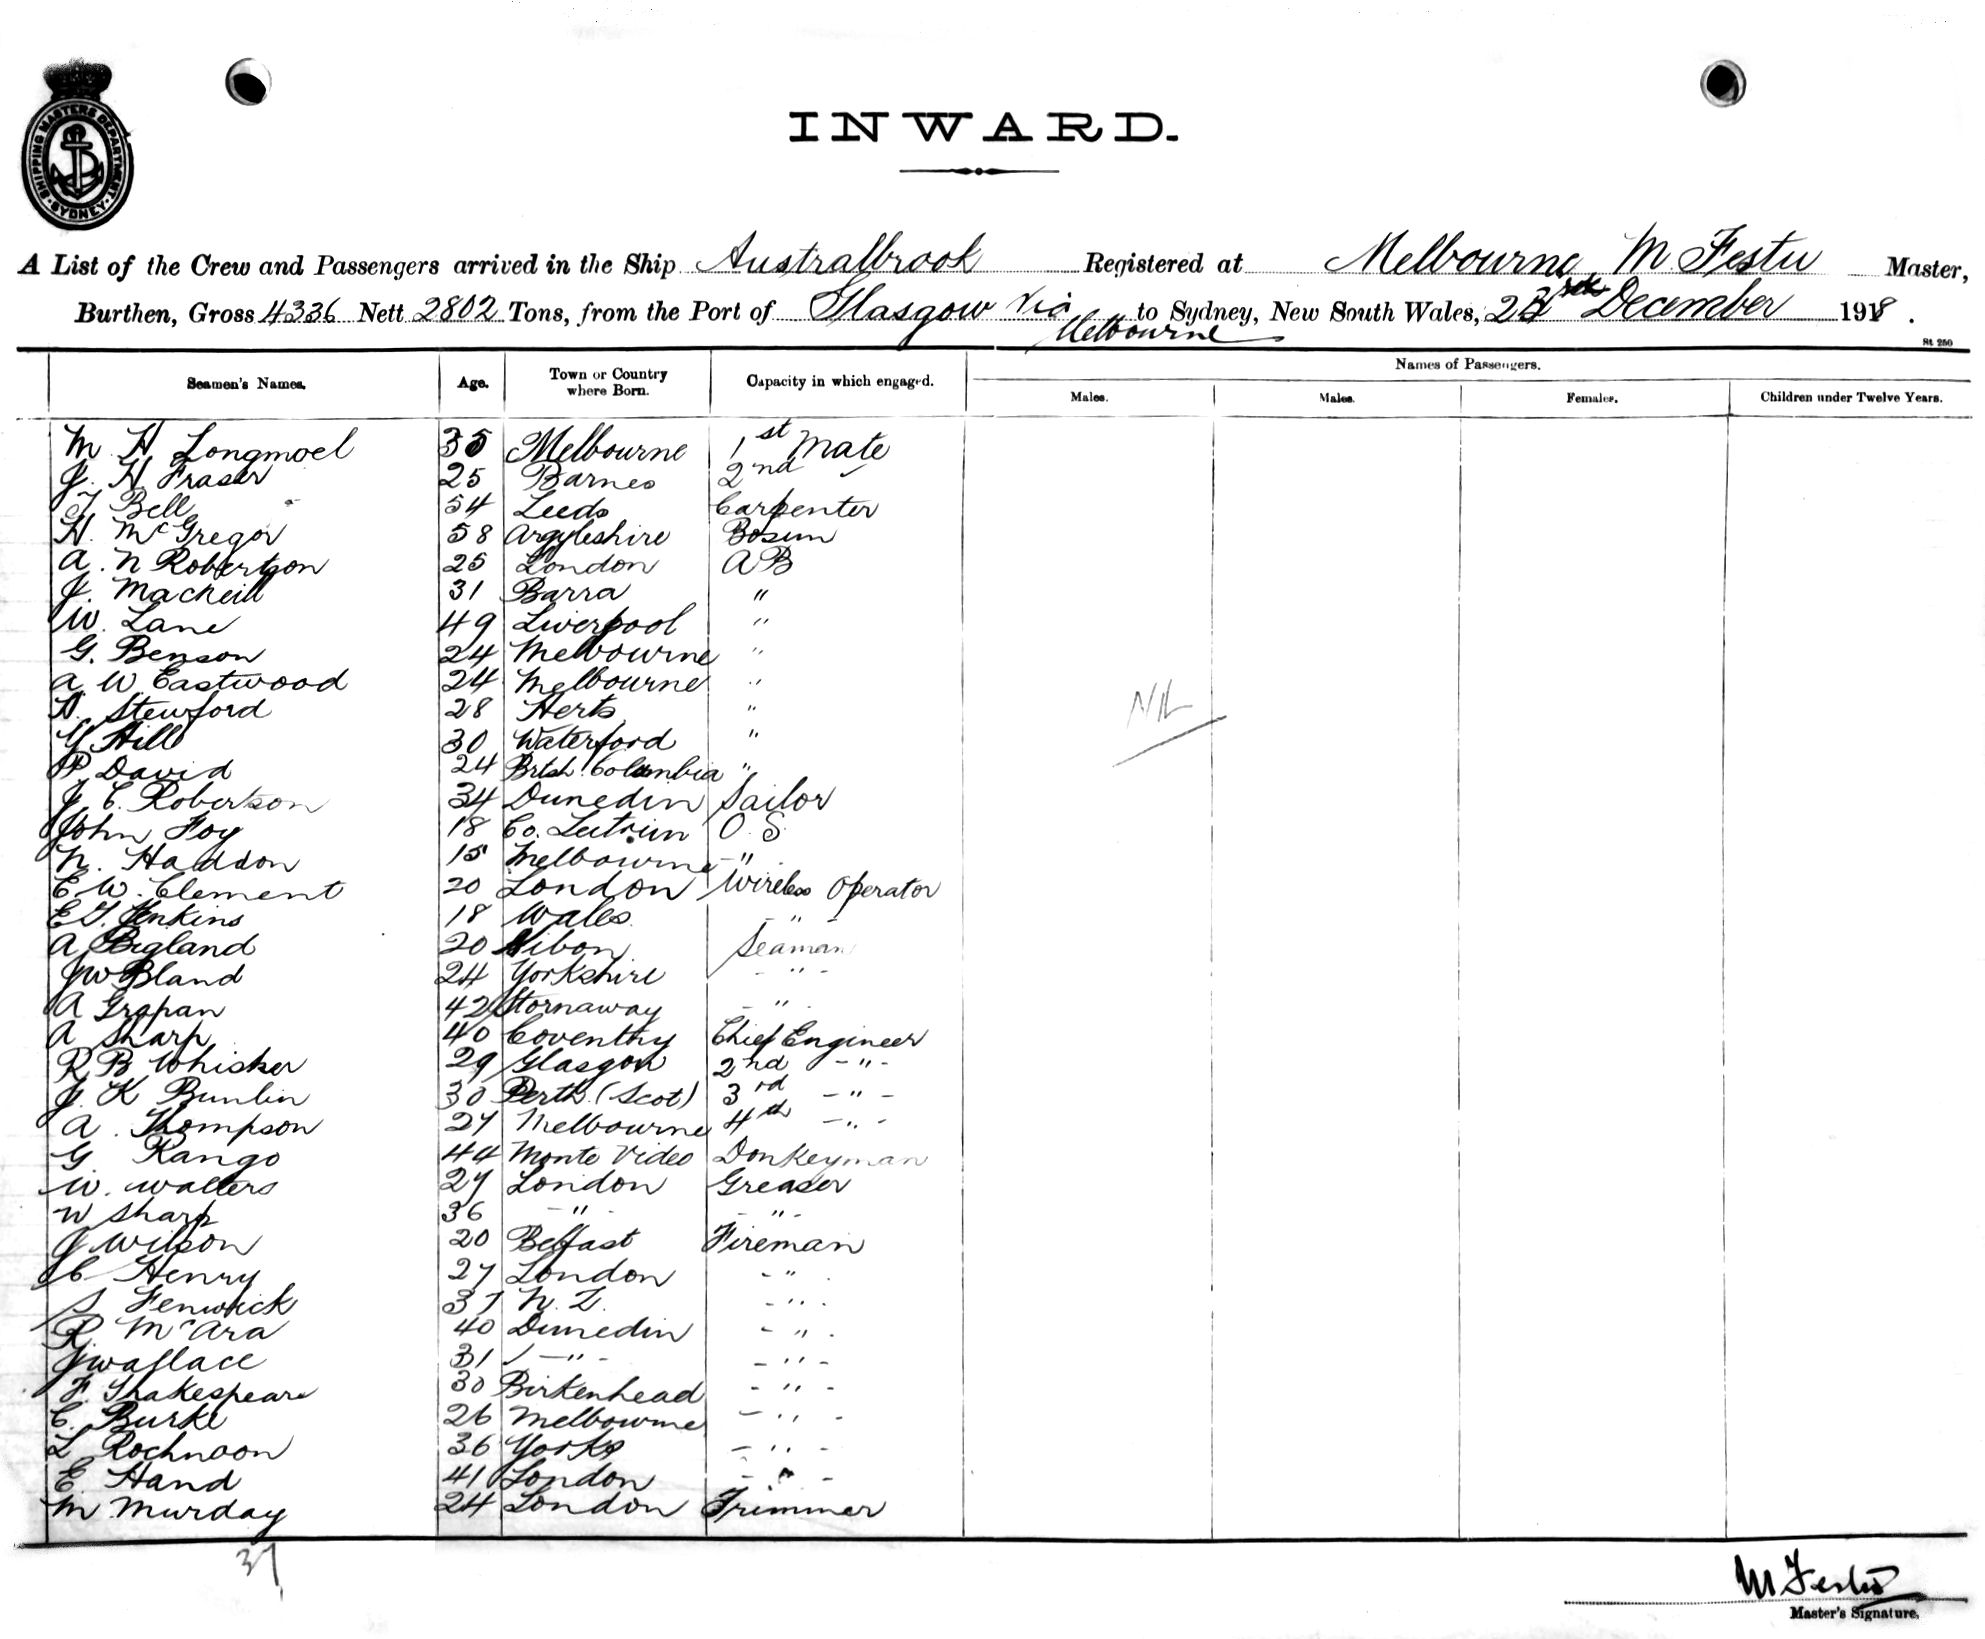 SHIPPING MASTERS DEPARTMENT SYDNEY
INWARD.
A List of the Crew and Passengers arrived in the Ship Australbrook Registered at Melbourne M Festu Master,
Burthen, Gross 4336 Nett 2802 Tons, from the Port of Glasgow via Melbourne to Sydney, New South Wales, 23rd December 1918.
St 250
Seamen's Names. Age. Town or Country where Born. Capacity in which engaged. Names of Passengers.
Males. Males. Females. Children under Twelve Years.
M. H. Longmoel 35 Melbourne 1st Mate
J. H. Fraser 25 Barnes 2nd
T Bell 54 Leeds Carpenter
H. McGregor 58 Argyleshire Bosun
A. N Robertson 25 London AB
J. Macneill 31 Barra "
W. Lane 49 Liverpool "
G. Benson 24 Melbourne "
A. W Eastwood 24 Melbourne "
H. Stewford 28 Herts "
Hill 30 Waterford "
P David 24 Brtsh Columbia "
J C. Robertson 34 Dunedin Sailor
John Foy 18 Co. Leitrim O. S.
N. Haddon 15 Melbourne "
E. W. Clement 20 London Wireless Operator
E T. Jenkins 18 Wales - " -
A Bigland 20 Seaman
J W Bland 24 Yorkshire - " -
A 42 Stornaway - " -
A Sharp 40 Coventry Chief Engineer
R B Whisker 29 Glasgow 2nd - " -
J. K Bunlin 30 Perth (Scot) 3rd - " -
A. Thompson 27 Melbourne 4th - " -
G. Rango 44 Monte Video Donkeyman
W. Walters 27 London Greaser
W Sharp 36 - " - - " -
J Wilson 20 Belfast Fireman
C Henry 27 London - " -
S Fenwick 37 N. Z. - " -
R. McAra 40 Dunedin - " -
J Wallace 31 - " - - " -
F. Shakespeare 30 Birkenhead - " -
C. Burke 26 Melbourne - " -
L Rochnoon 36 Yorks - " -
E. Hand 41 London - " -
M Murday 24 London Trimmer
NIL
37
M Festu
Master's Signature.